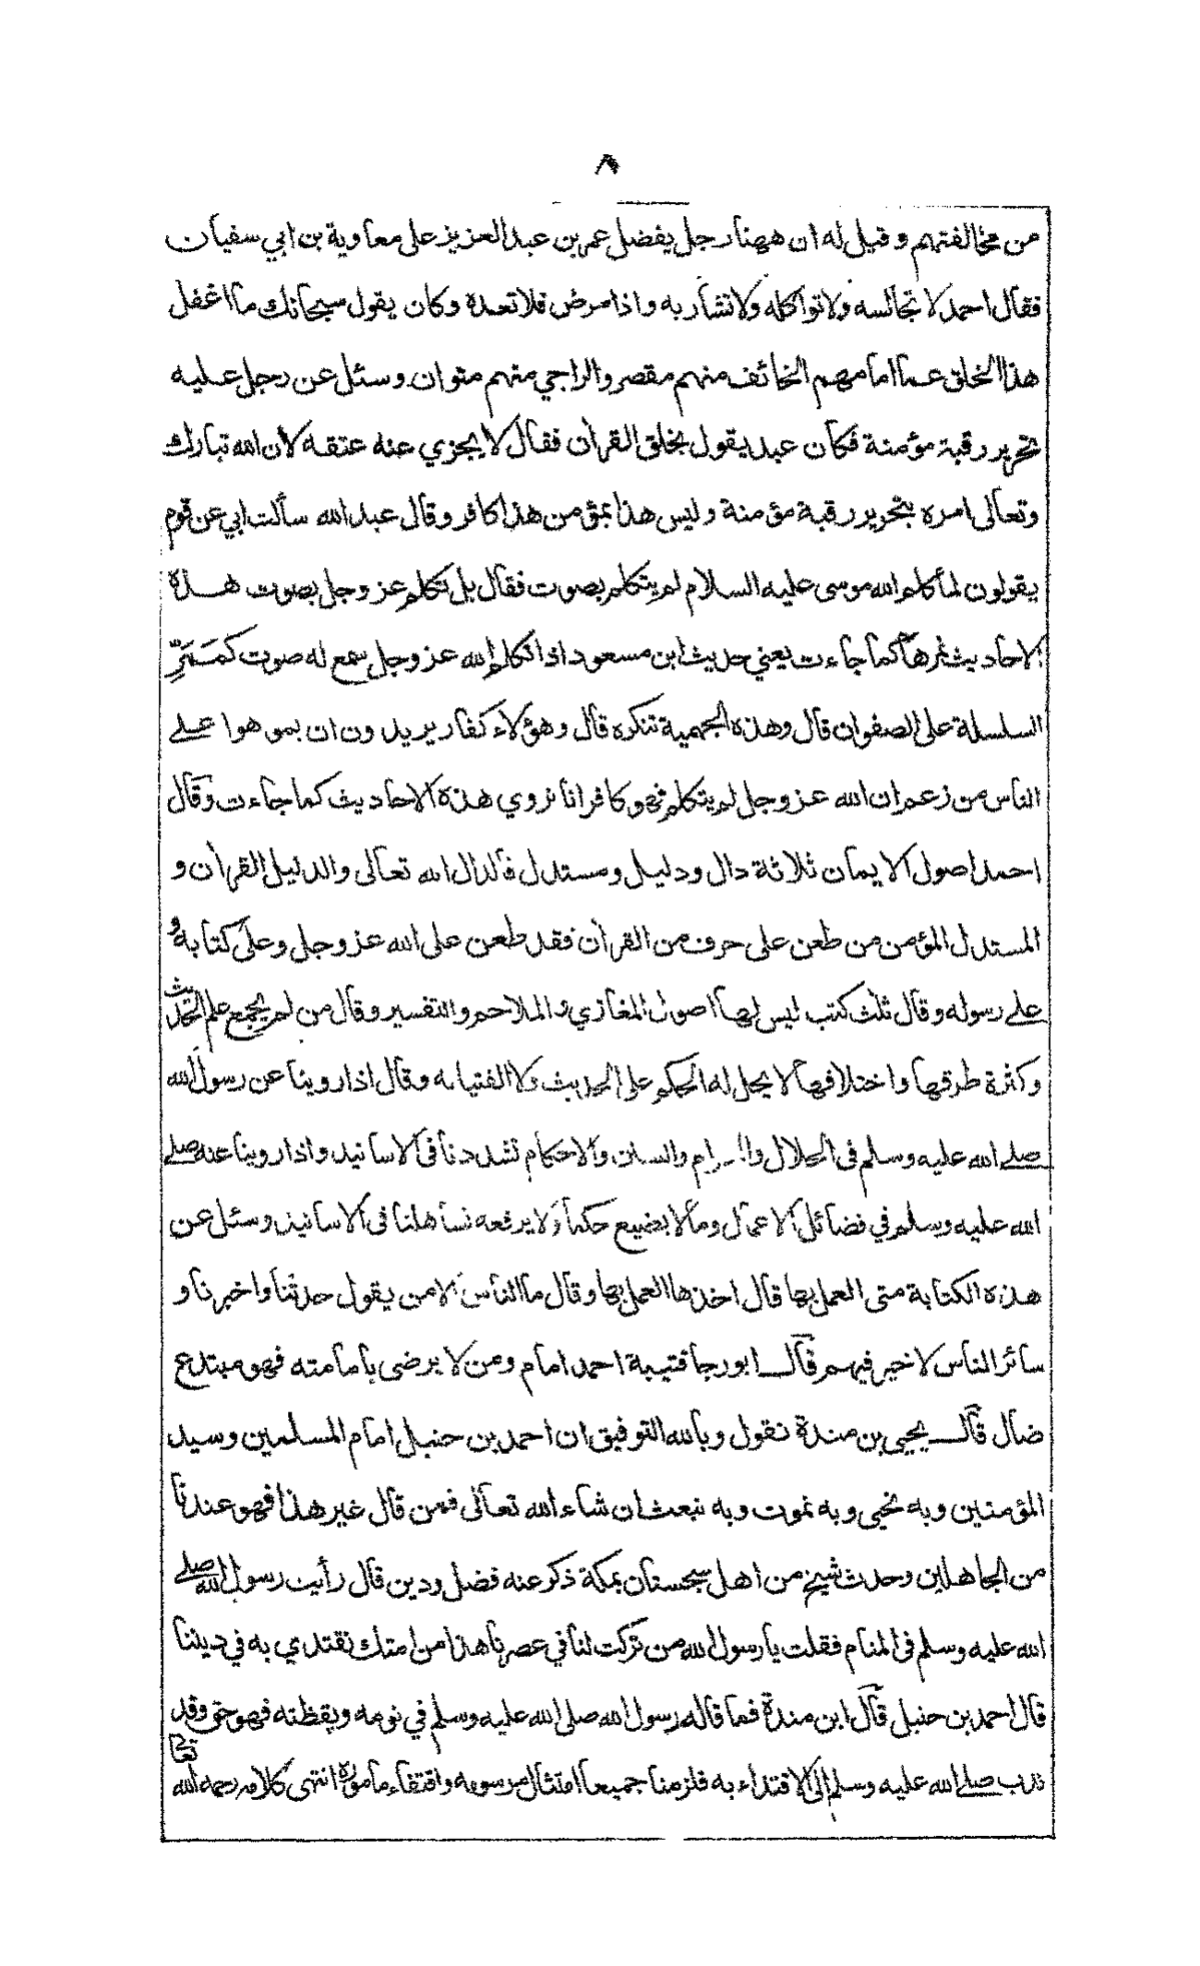 ٨
من مخالفتهم وقيل له ان ههنا رجل يفضل عمر بن عبد العزيز على معاوية بن ابي سفيان
فقال احمد لا تجالسه ولا تواكله ولا تشاربه واذا مرض فلا تعده وكان يقول سبحانك ما اغفل
هذا الخلق عما امامهم الخائف منهم مقصر والراجي منهم متوان وسئل عن رجل عليه
تحرير رقبة مؤمنة فكان عبد يقول بخلق القرآن فقال لا يجزي عنه عتقه لأن الله تبارك
وتعالى امره بتحرير رقبة مؤمنة وليس هذا بمؤمن هذا كافر وقال عبد الله سألت ابي عن قوم
يقولون لما كلم الله موسى عليه السلام لم يتكلم بصوت فقال بل تكلم عز وجل بصوت هذه
الاحاديث نمرها كما جاءت يعني حديث ابن مسعود اذا تكلم الله عز وجل سمع له صوت كمَرِّ
السلسلة على الصفوان قال وهذه الجهمية تنكره قال وهؤلاء كفار يريدون ان يموهوا على
الناس من زعم ان الله عز وجل لم يتكلم فهو كافر انا نروي هذه الاحاديث كما جاءت وقال
احمد اصول الايمان ثلاثة دال ودليل ومستدل فالدال الله تعالى والدليل القرآن و
المستدل المؤمن من طعن على حرف من القرآن فقد طعن على الله عز وجل وعلى كتابه و
على رسوله وقال ثلث كتب ليس لها اصول المغازي والملاحم والتفسير وقال من لم يجمع علم الحديث
وكثرة طرقها واختلافها لا يحل له الحكم على الحديث ولا الفتيا به وقال اذا روينا عن رسول الله
صلى الله عليه وسلم في الحلال والحرام والسنن والاحكام تشددنا في الاسانيد واذا روينا عنه صلى
الله عليه وسلم في فضائل الاعمال وما لا يضيع حكما ولا يرفعه تساهلنا في الاسانيد وسئل عن
هذه الكتابة متى العمل بها قال اخذها العمل بها وقال ما الناس الا من يقول حدثنا واخبرنا و
سائر الناس لا خير فيهم قال ابو رجا قتيبة احمد امام ومن لا يرضى بامامته فهو مبتدع
ضال قال يحيى بن مندة نقول وبالله التوفيق ان احمد بن حنبل امام المسلمين وسيد
المؤمنين وبه نحيى وبه نموت وبه نبعث ان شاء الله تعالى فمن قال غير هذا فهو عندنا
من الجاهلين وحدث شيخ من اهل سجستان بمكة ذكر عنه فضل ودين قال رأيت رسول الله صلى
الله عليه وسلم في المنام فقلت يا رسول الله من تركت لنا في عصرنا هذا من امتك نقتدي به في ديننا
قال احمد بن حنبل قال ابن مندة فما قاله رسول الله صلى الله عليه وسلم في نومه ويقظته فهو حق وقد
ندب صلى الله عليه وسلم الى الاقتداء به فلزمنا جميعا امتثال مرسومه واقتفاء ماموره انتهى كلامه رحمه الله تعالى